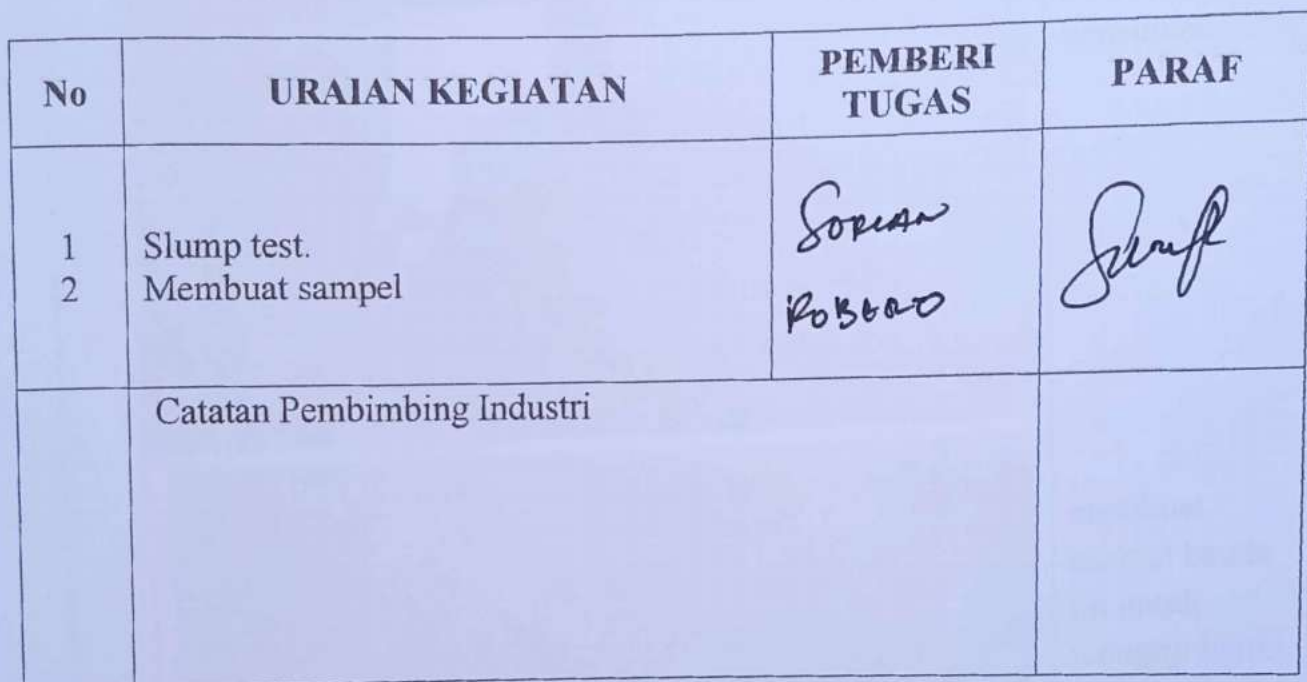 No
URAIAN KEGIATAN
PEMBERI
TUGAS
PARAF
1
Slump test.
2
Membuat sampel
SORIAN
ROBERO
Catatan Pembimbing Industri